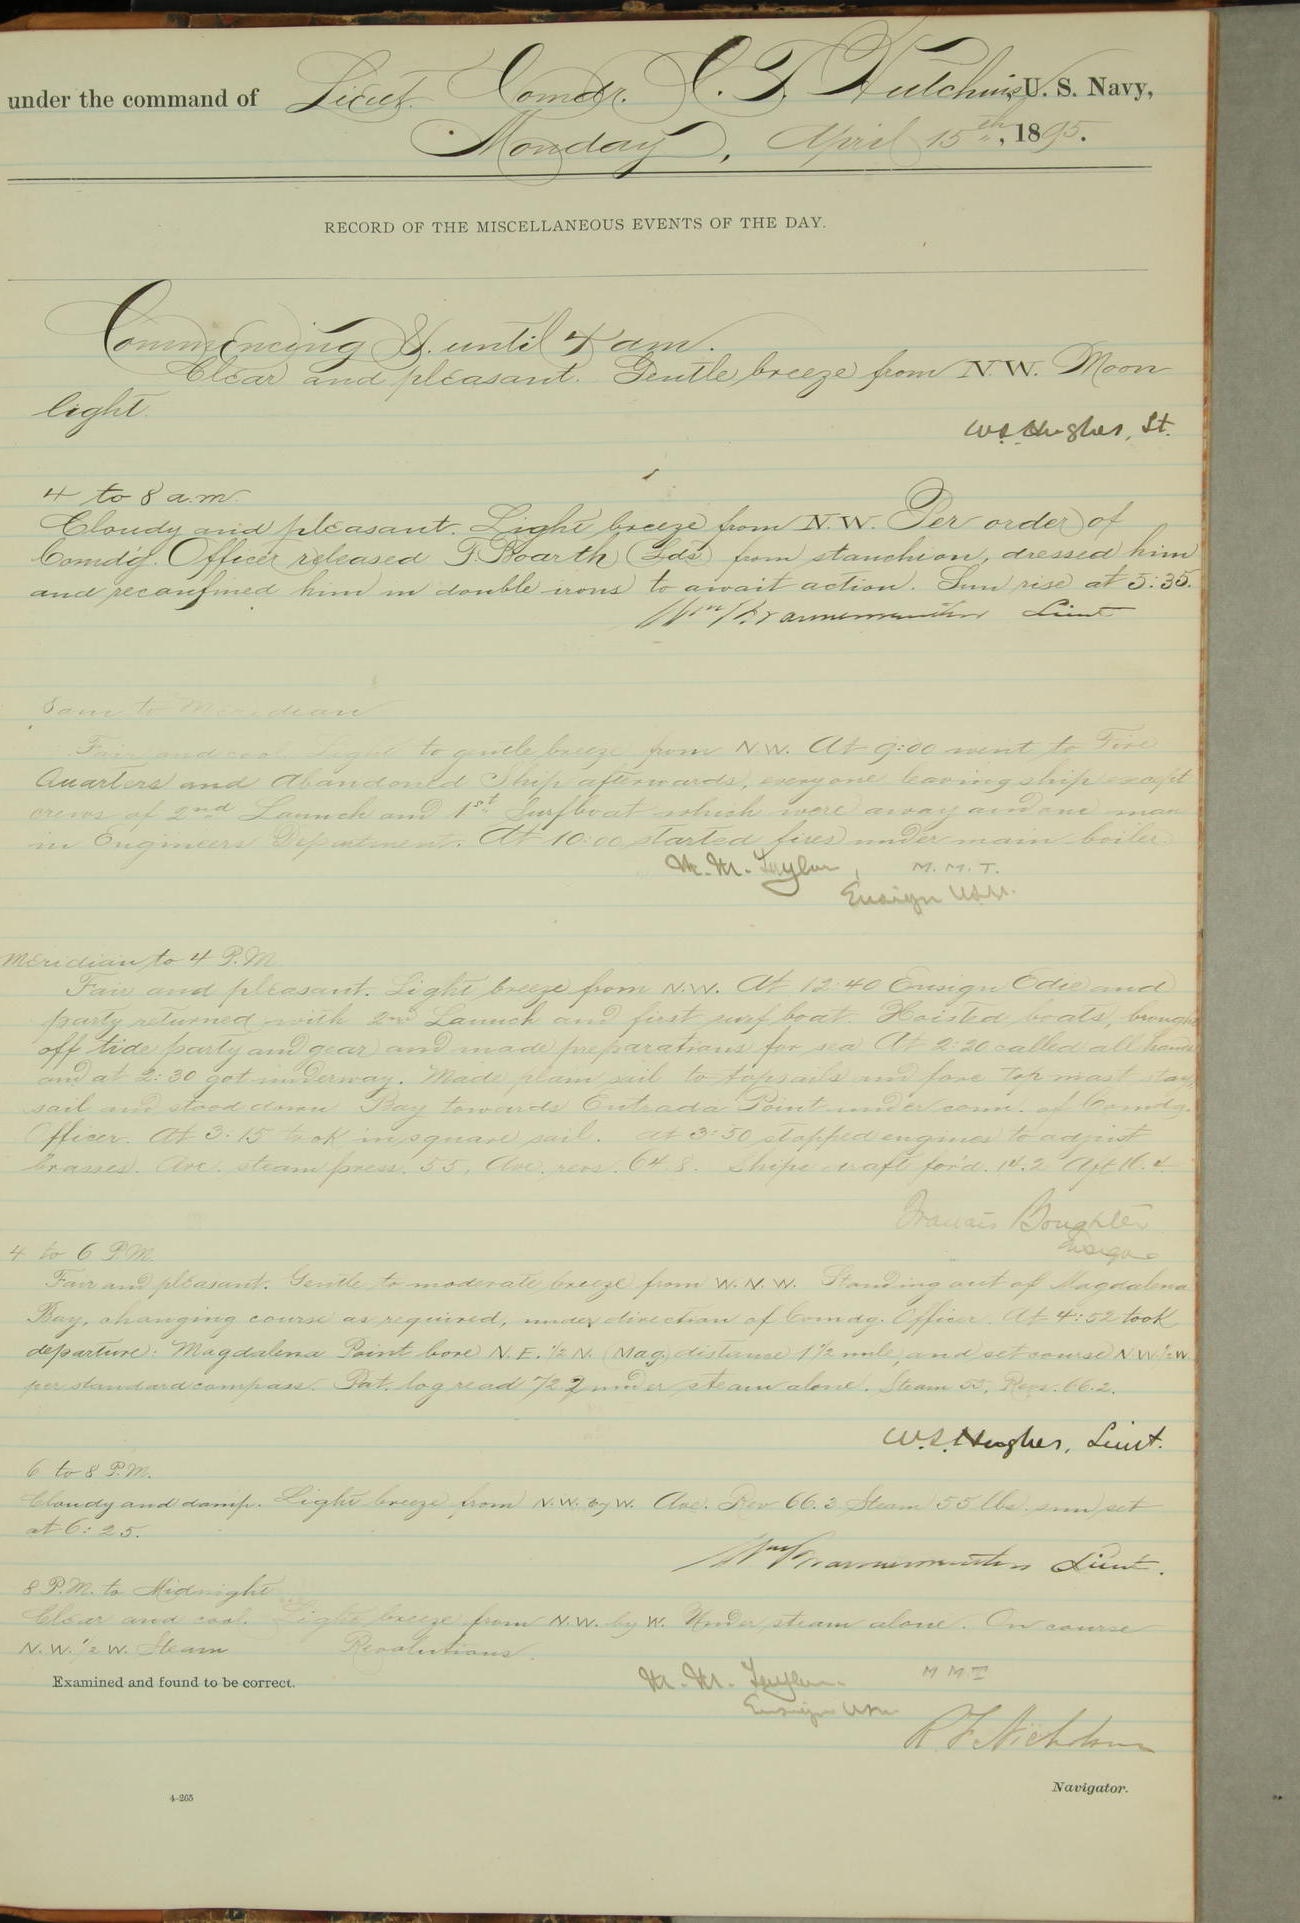 under the command of Lieut. Comdr. C. T. Hutchins, U. S. Navy,
Monday, April 15th, 1895.
RECORD OF THE MISCELLANEOUS EVENTS OF THE DAY.
Commencing & until 4 am.
Clear and pleasant. Gentle breeze from N.W. Moon
light.
W.S. Hughes, Lt.
4 to 8 a.m.
Cloudy and pleasant. Light breeze from N.W. Per order of
Comd'g. Officer released F. Boarth (Lds) from stanchion, dressed him
and reconfined him in double irons to await action. Sun rise at 5:35.
Wm Lieut
8 am to Meridian
Fair and cool Light to gentle breeze from N.W. At 9:00 went to Fire
Quarters and Abandoned Ship afterwards, everyone leaving ship except
crews of 2nd Launch and 1st Surfboat which were away and one man
in Engineers Department. At 10:00 started fires under main boiler.
M. M. Taylor, M.M.T.
Ensign U.S.N.
Meridian to 4 P.M.
Fair and pleasant. Light breeze from N.W. At 12:40 Ensign Odie and
party returned with 2nd Launch and first surf boat. Hoisted boats, brought
off tide party and gear and made preparations for sea At 2:20 called all hands
and at 2:30 got underway. Made plain sail to topsails and fore top mast stay
sail and stood down Bay towards Entrada Point under conn. of Comdg.
Officer. At 3:15 took in square sail. At 3:50 stopped engines to adjust
brasses. Ave. steam press. 55, Ave. revs. 64.8. Ships draft for'd. 14.2 Aft 16.4.
Francis Boughter
Ensign
4 to 6 P.M.
Fair and pleasant. Gentle to moderate breeze from W.N.W. Standing out of Magdalena
Bay, changing course as required, under direction of Comdg. Officer. At 4:52 took
departure: Magdalena Point bore N.E. 1/2 N. (Mag.) distance 1 1/2 mile, and set course N W 1/2 W
per standard compass. Pat. log read 72.2 under steam alone. Steam 55, Revs. 66.2.
W.S. Hughes, Lieut.
6 to 8 P.M.
Cloudy and damp. Light breeze from N.W. by W. Ave. Rev 66.3 Steam 55 lbs. sun set
at 6:25.
Wm Lieut.
8 P.M. to Midnight
Clear and cool. Light breeze from N.W. by W. Under steam alone. On course
N.W. 1/2 W. Steam Revolutions.
Examined and found to be correct.
M. M. Taylor M M T
Ensign USN
R F Nicholson
Navigator.
4-265